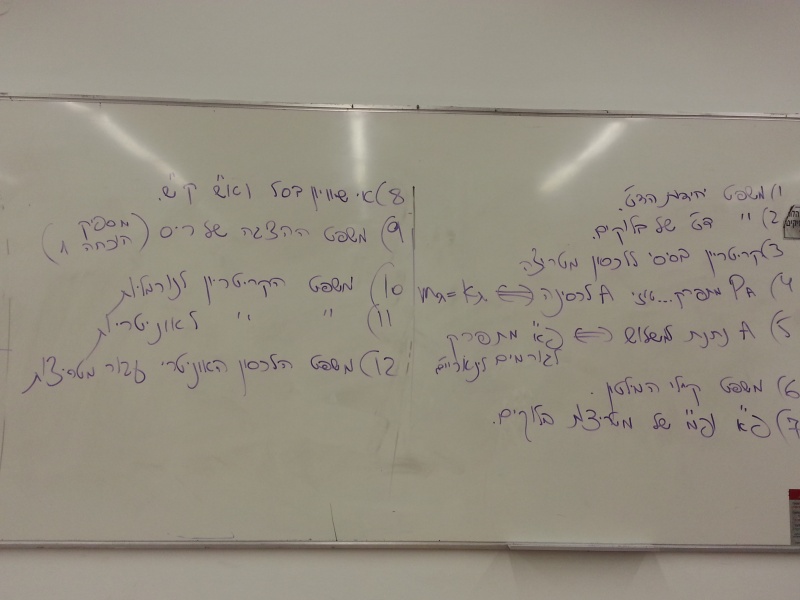 1) משפט יחידות הדט.
2) " דט של בלוקים.
3) קריטריון בסיסי ללכסון מטריצה
4) PA מתפרק... A לכסינה ⇔ mλ = kλ
5) A ניתנת לשילוש ⇔ פ"א מתפרק
לגורמים לינאריים
6) משפט קיילי המילטון.
7) פ"א ופ"מ של מטריצת בלוקים.
8) אי שוויון בסל ואש ק"ש.
9) משפט ההצגה של ריס (מספיק הוכחה 1)
10) משפט הקריטריון לנורמליות
11) " " לאוניטריות
12) משפט הלכסון האוניטרי עבור מטריצות